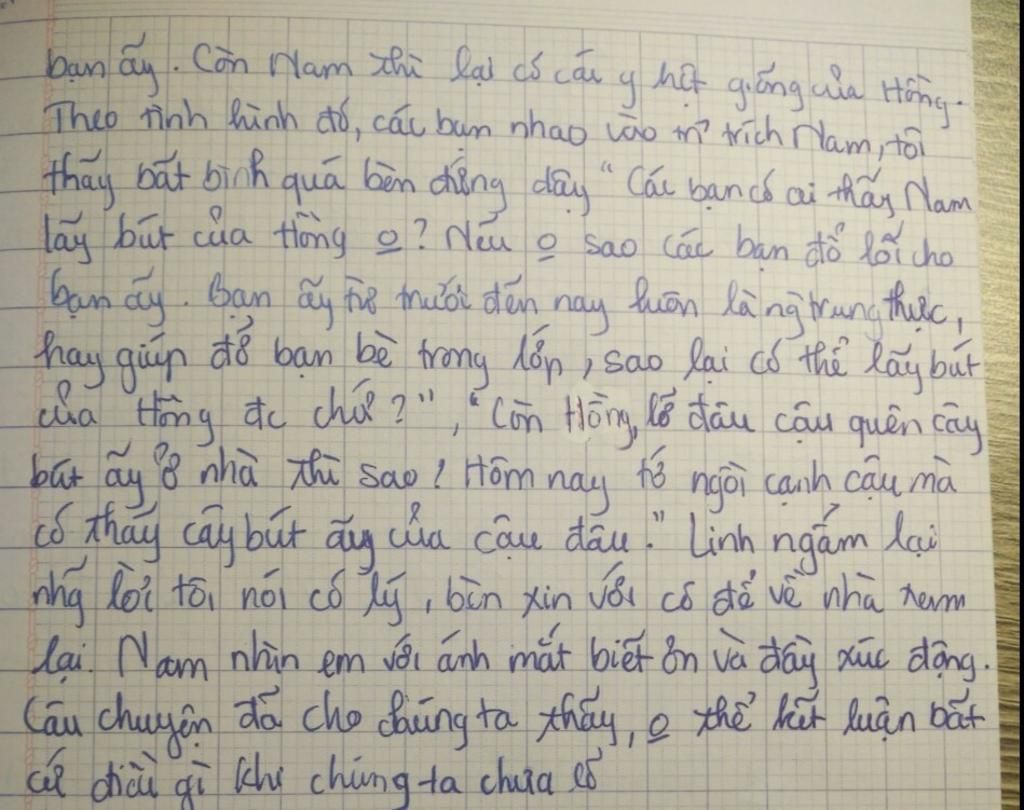 bạn ấy. Còn Nam thì lại có cái y hệt giống của Hồng.
Theo tình hình đó, các bạn nhao vào trỉ trích Nam, tôi
thấy bất bình quá bèn đứng dậy "Các bạn có ai thấy Nam
lấy bút của Hồng o? Nếu o sao các bạn đổ lỗi cho
bạn ấy. Bạn ấy từ trước đến nay luôn là ng trung thực,
hay giúp đỡ bạn bè trong lớp, sao lại có thể lấy bút
của Hồng đc chứ?", "Còn Hồng, lỡ đâu cậu quên cây
bút ấy ở nhà thì sao? Hôm nay tớ ngồi cạnh cậu mà
có thấy cây bút ấy của cậu đâu." Linh ngẫm lại
nhg lời tôi nói có lý, bèn xin với cô để về nhà xem
lại. Nam nhìn em với ánh mắt biết ơn và đầy xúc động.
Câu chuyện đã cho chúng ta thấy, o thể kết luận bất
cứ điều gì khi chúng ta chưa có